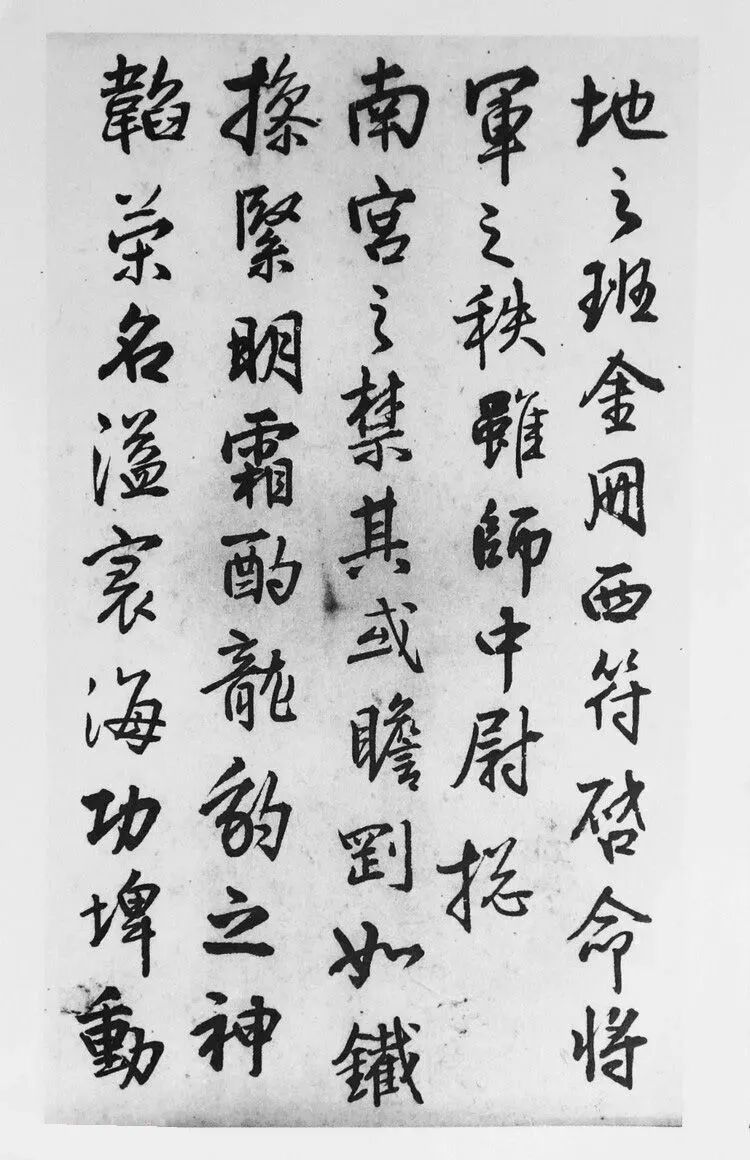 地之班金冊西符啓命将
軍之秩雖師中尉揔
南宮之禁其或瞻罰如鐵
操緊明霜酌龍豹之神
韜榮名溢寰海功埤動